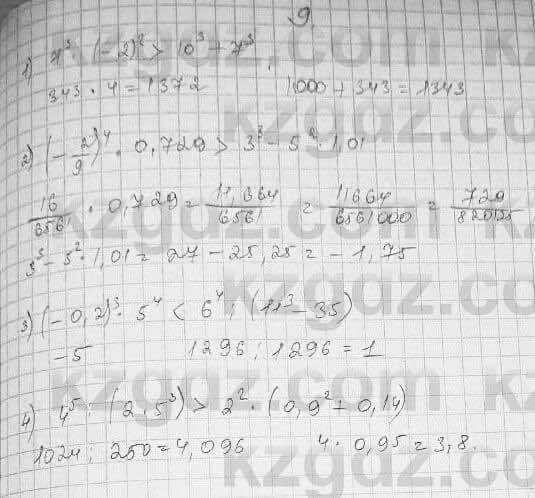 9.
1) 7³ · (-2)² > 10³ + 7³
343 · 4 = 1372 1000 + 343 = 1343
2) (-2/9)⁴ · 0,729 > 3³ - 5² · 1,01
16/6561 · 0,729 = 11,664/6561 = 11664/6561000 = 729/820125
3³ - 5² · 1,01 = 27 - 25,25 = - 1,75
3) (-0,2)³ · 5⁴ < 6⁴ : (11³ - 35)
-5 1296 : 1296 = 1
4) 4⁵ : (2 · 5³) > 2² · (0,9² + 0,14)
1024 : 250 = 4,096 4 · 0,95 = 3,8.
kzgdz.com
kzgdz.com
kzgdz.com
kzgdz.com
kzgdz.com
kzgdz.com